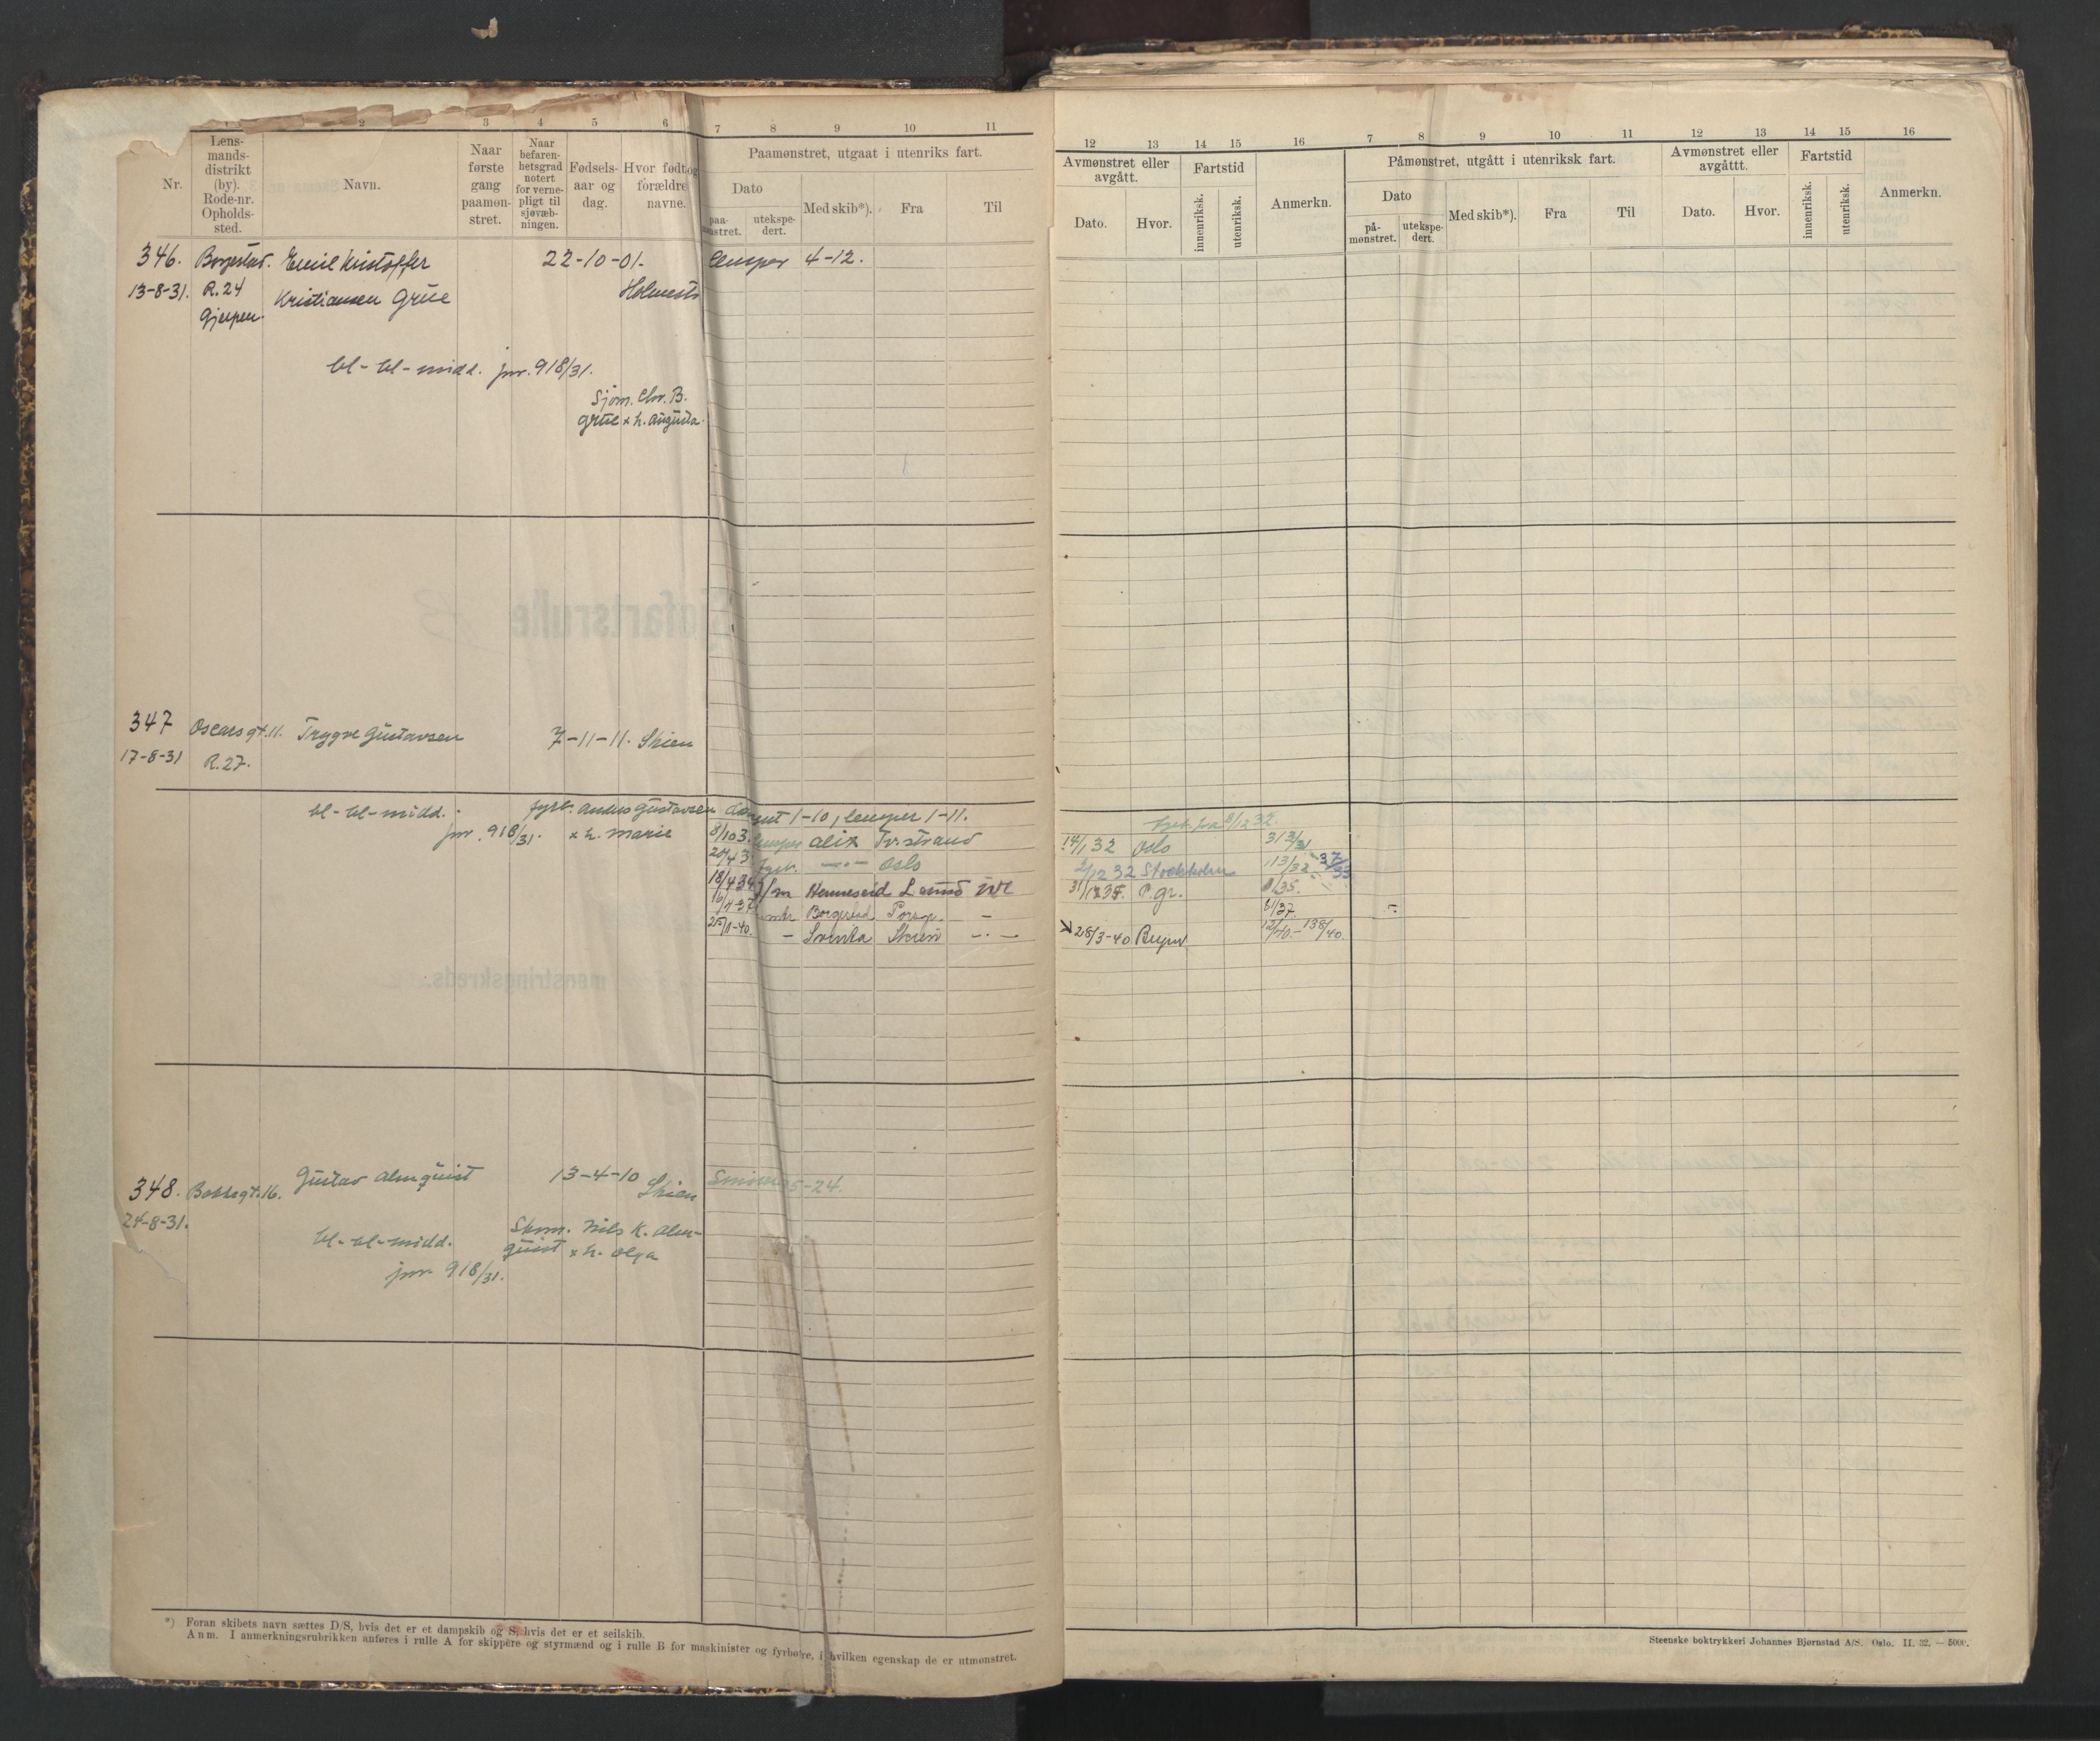 1 2 3 4 5 6 7 8 9 10 11
Nr.
Lens-
mands-
distrikt
(by).
Rode-nr.
Opholds-
sted.
Navn.
Naar
første
gang
paamøn-
stret.
Naar
befaren-
hetsgrad
notert
for verne-
pligt til
sjøvæb-
ningen.
Fødsels-
aar og
dag.
Hvor født og
forældre
navne.
Paamønstret, utgaat i utenriks fart.
Dato
paa-
mønstret.
utekspe-
dert.
Med skib*).
Fra
Til
346. Borgestad. Emil Kristoffer 22-10-01. Lemper 4-12.
13-8-31. R. 24 Kristiansen Grue Holmestr
Gjerpen.
bl-bl-midd. jnr. 918/31.
Sjøm. Chr. B.
Grue x h. Augusta.
347 Oscarsgt. 11. Trygve Gustavsen 7-11-11. Skien
17-8-31 R. 27.
bl-bl-midd. fyrb. Anders Gustavsen 1-10, lemper 1-11.
jnr. 918/31. x h. Marie
8/10 3 lemper Alix Tv.strand
20/4 3 fyrb. -"- Oslo
18/4 34 Henneseid
16/4-37 Borgestad Porsgr. -
25/1-40. - Svinta Skien -.-
348. Bakkegt. 16. Gustav Almquist 13-4-10 Skien 5-24.
24-8-31.
bl-bl-midd. Nils K. Alm-
quist x h. Olga
jnr. 918/31.
*) Foran skibets navn sættes D/S, hvis det er et dampskib og S, hvis det er et seilskib.
Anm. I anmerkningsrubrikken anføres i rulle A for skippere og styrmænd og i rulle B for maskinister og fyrbøtere, i hvilken egenskap de er utmønstret.
12 13 14 15 16 7 8 9 10 11 12 13 14 15 16
Avmønstret eller
avgått.
Dato.
Hvor.
Fartstid
innenriksk.
utenriksk.
Anmerkn.
Påmønstret, utgått i utenriksk fart.
Dato
på-
mønstret.
utekspe-
dert.
Med skib*).
Fra
Til
Avmønstret eller
avgåttt.
Dato.
Hvor.
Fartstid
innenriksk.
utenriksk.
Anmerkn.
fyrb. fra 8/12 32.
14/1 32 Oslo
2/12 32 Stockholm 113/32
P.gr. 8/35.
81/37.
28/3-40 12/40.-138/40.
Steenske boktrykkeri Johannes Bjørnstad A/S. Oslo. II. 32. — 5000.